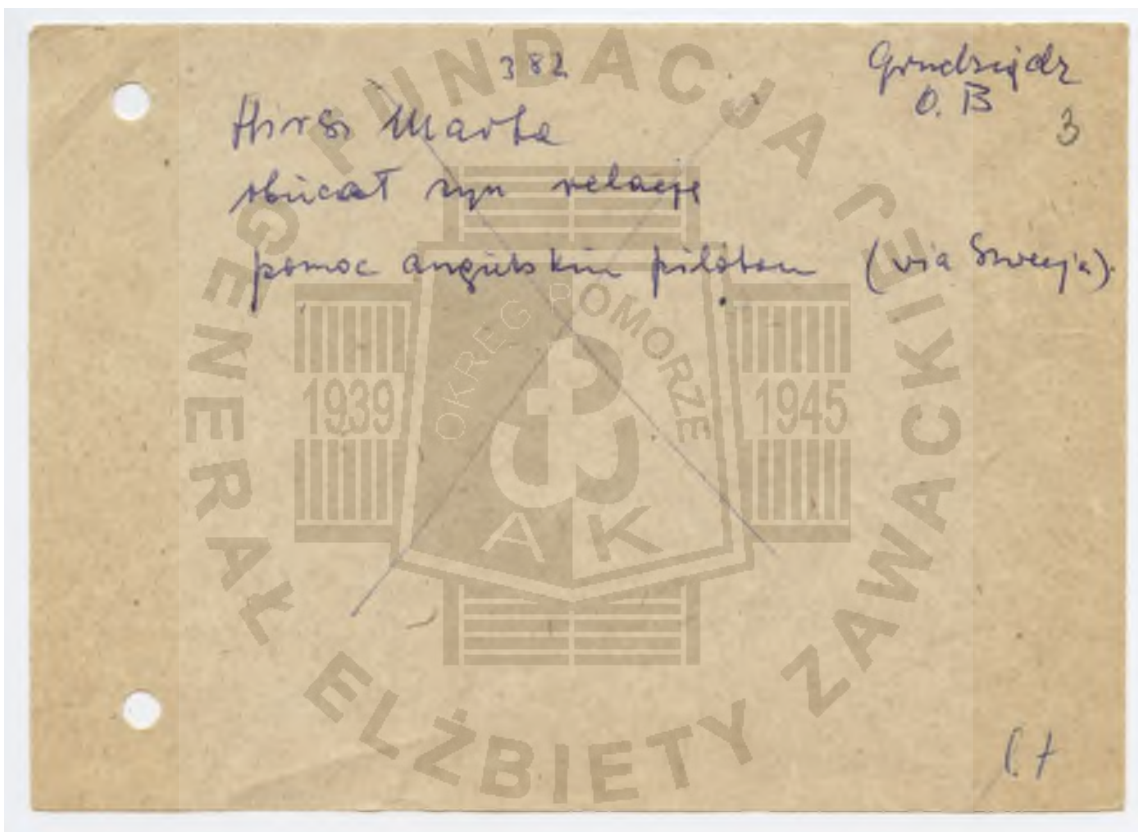 382
Grudziądz
O. B
3
Hirsz Marta
obiecał syn relację
pomoc angielskim pilotom (via Szwecja).
FUNDACJA GENERAŁ ELŻBIETY ZAWACKIEJ
OKRĘG POMORZE
1939 1945
AK